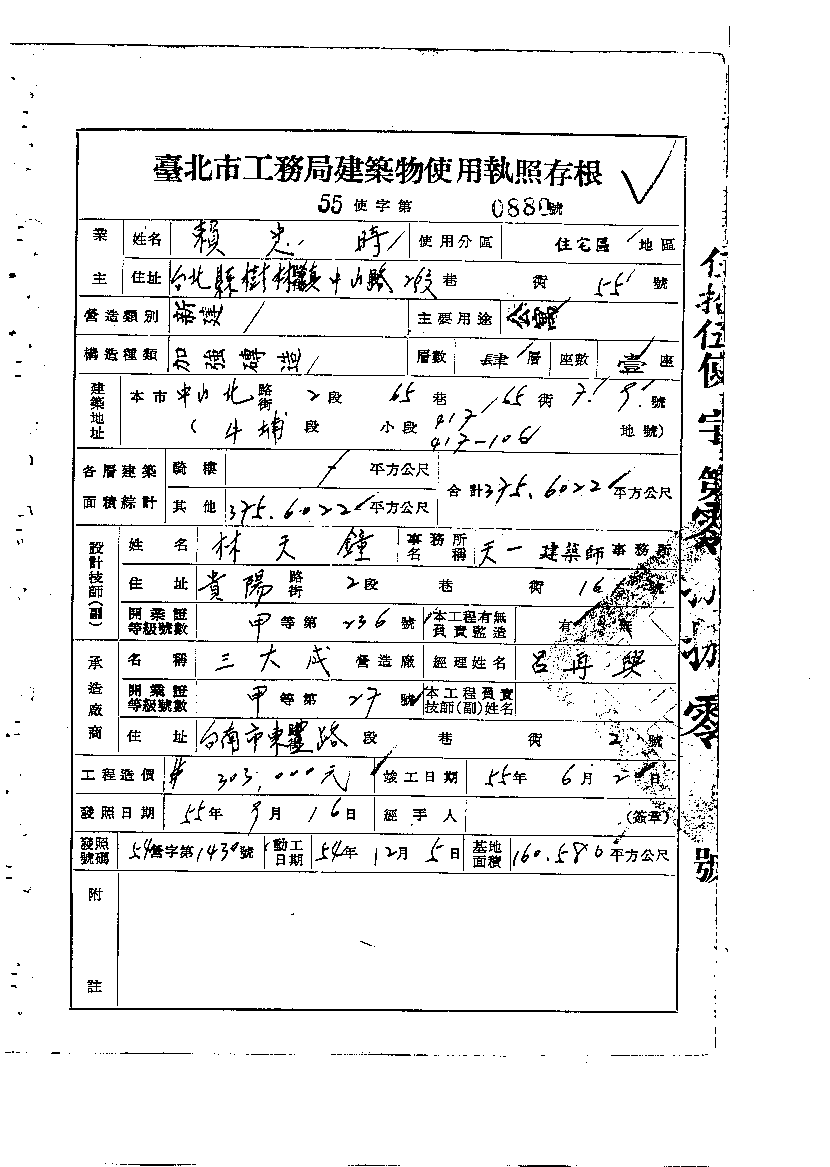 臺北市工務局建築物使用執照存根
55 使字第 0880號
業主 姓名 賴忠時 使用分區 住宅區 地區
住址 台北縣樹林鎮中山路2段 巷 街 55 號
營造類別 新建 主要用途 公寓
構造種類 加強磚造 層數 肆層 座數 壹座
建築地址 本市 中山北路街 2段 65巷 65街 7. 9. 號
( 牛埔段 小段 417 417-106 地號)
各層建築面積綜計 騎樓 平方公尺 合計 375.6022 平方公尺
其他 375.6022 平方公尺
設計技師(副) 姓名 林天鐘 事務所名稱 天一建築師事務所
住址 貴陽路街 2段 巷 街 16 號
開業證等級號數 甲等第 236 號 本工程有無負責監造 有
承造廠商 名稱 三大成營造廠 經理姓名 呂再興
開業證等級號數 甲等第 27 號 本工程負責技師(副)姓名
住址 台南市東豐路 段 巷 街 2 號
工程造價 303,000元 竣工日期 55年 6月 2 日
發照日期 55年 9月 16日 經手人 (簽章)
發照號碼 54營字第1430號 動工日期 54年 12月 5日 基地面積 160.580 平方公尺
附註
伍拾伍使字第零捌捌零號